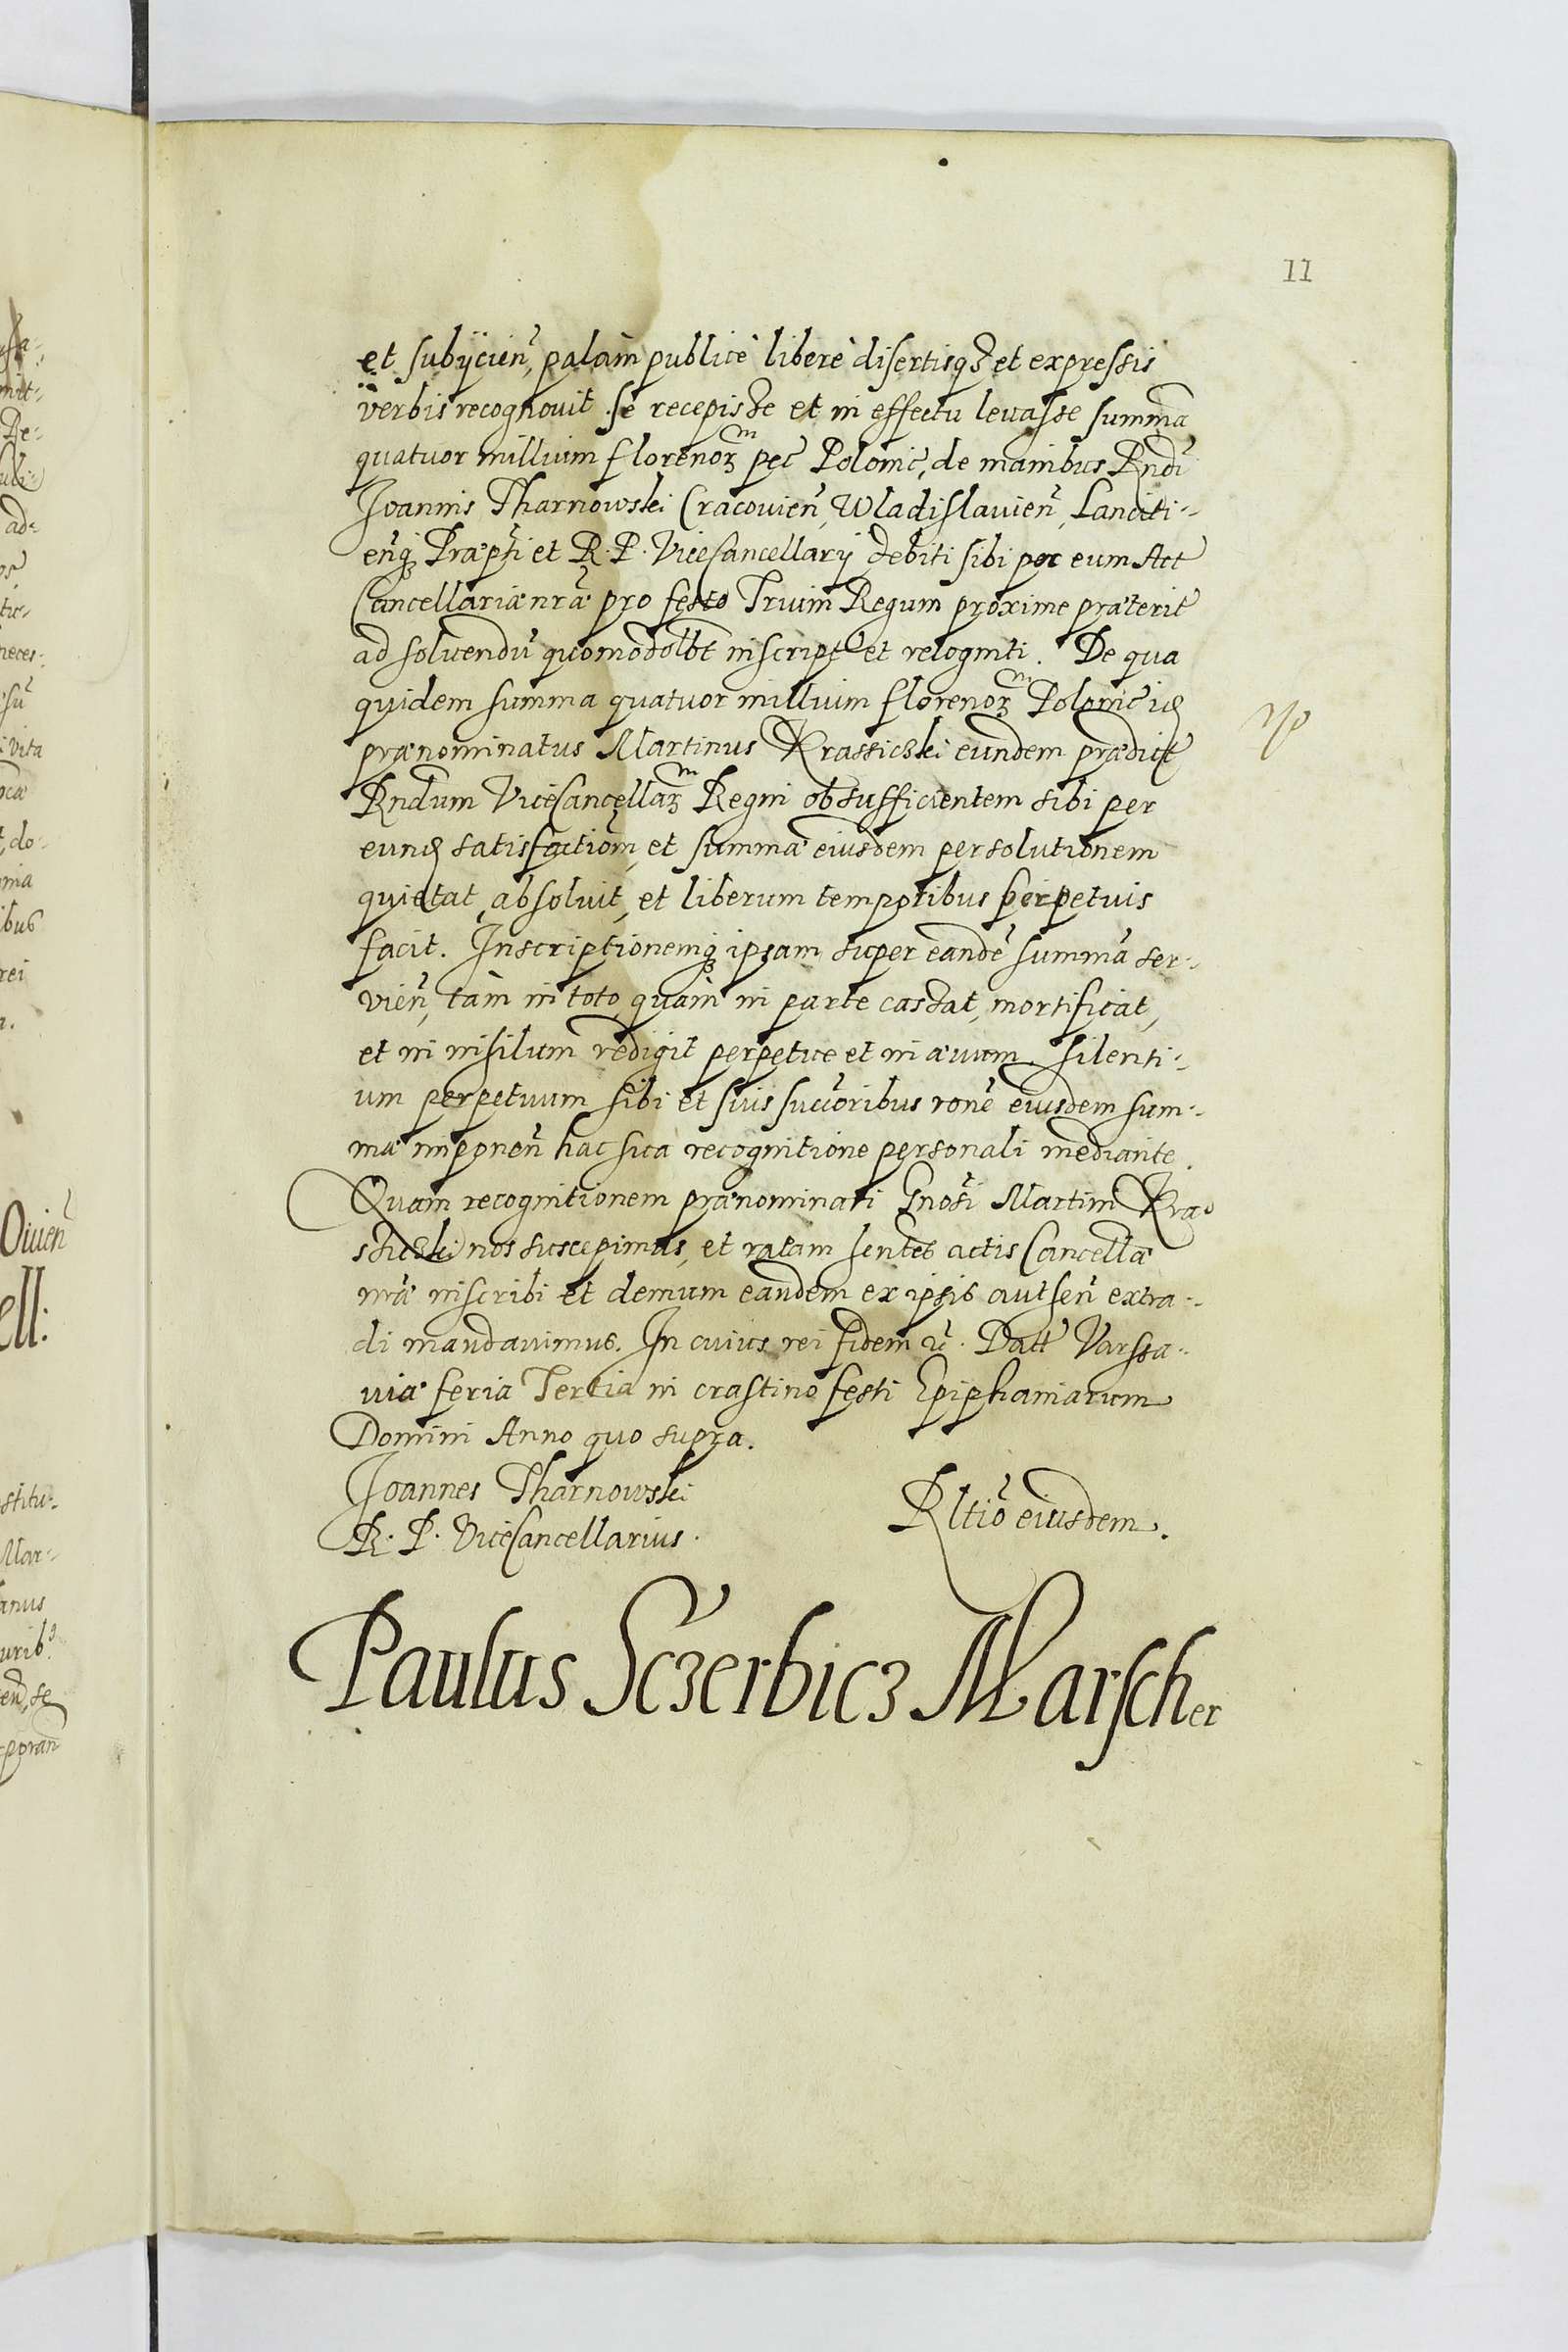 11
et subijcien, palàm publicè liberè disertisq3 et expressis
verbis recognovit se recepisse et in effectu levasse summã
quatuor millium florenoꝝ pec Polonic, de manibus Rndi
Joannis Tharnowski Cracovien, Wladislavien, Lanciti-
enq3 Præpti et R. P. ViceCancellarij debiti sibi per eum Act
Cancellariæ nræ pro festo Trium Regum proxime præterit
ad solvendũ quomodolbt inscript et recogniti. De qua
quidem summa quatuor millium florenoꝝ Polonic id
prænominatus Martinus Krassiczki eundem prædict
Rndum ViceCancellaꝝ Regni ob sufficientem sibi per
eund satisfactiõm, et summæ eiusdem persolutionem
quietat, absolvit, et liberum temporibus perpetuis
facit. Inscriptionemq3 ipsam super eandẽ summã ser-
vien, tàm in toto, quàm in parte cassat, mortificat,
et in nihilum redigit perpetue et in ævum. Silenti-
um perpetuum sibi et suis succõribus rone eiusdem sum-
mæ imponen hac sua recognitione personali mediante.
Quam recognitionem prænominati Gnosi Martini Kra-
siczki nos suscepimus, et ratam hentes actis Cancellæ
nræ inscribi et demum eandem ex ipsis authen extra-
di mandavimus. In cuius rei fidem &. Datt Varsa-
viæ feria Tertia in crastino festi Epiphaniarum
Domini Anno quo supra.
Joannes Tharnowski
R. P. ViceCancellarius.
Rltio eiusdem.
Paulus Sczerbicz